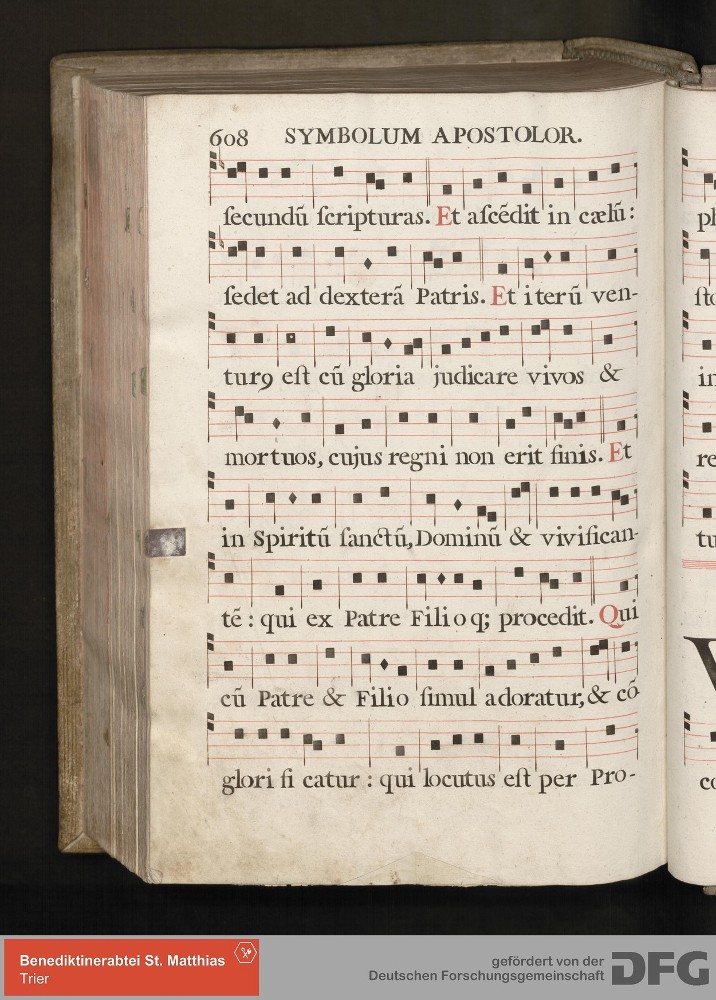 608 SYMBOLUM APOSTOLOR.
secundũ scripturas. Et ascẽdit in cælũ:
sedet ad dexterã Patris. Et iterũ ven-
turꝯ est cũ gloria judicare vivos &
mortuos, cujus regni non erit finis. Et
in Spiritũ sanctũ, Dominũ & vivifican-
tẽ: qui ex Patre Filioq; procedit. Qui
cũ Patre & Filio simul adoratur, & cõ-
glorificatur: qui locutus est per Pro-
pl
sto
in
re
tu
V
co
Benediktinerabtei St. Matthias
Trier
gefördert von der
Deutschen Forschungsgemeinschaft
DFG